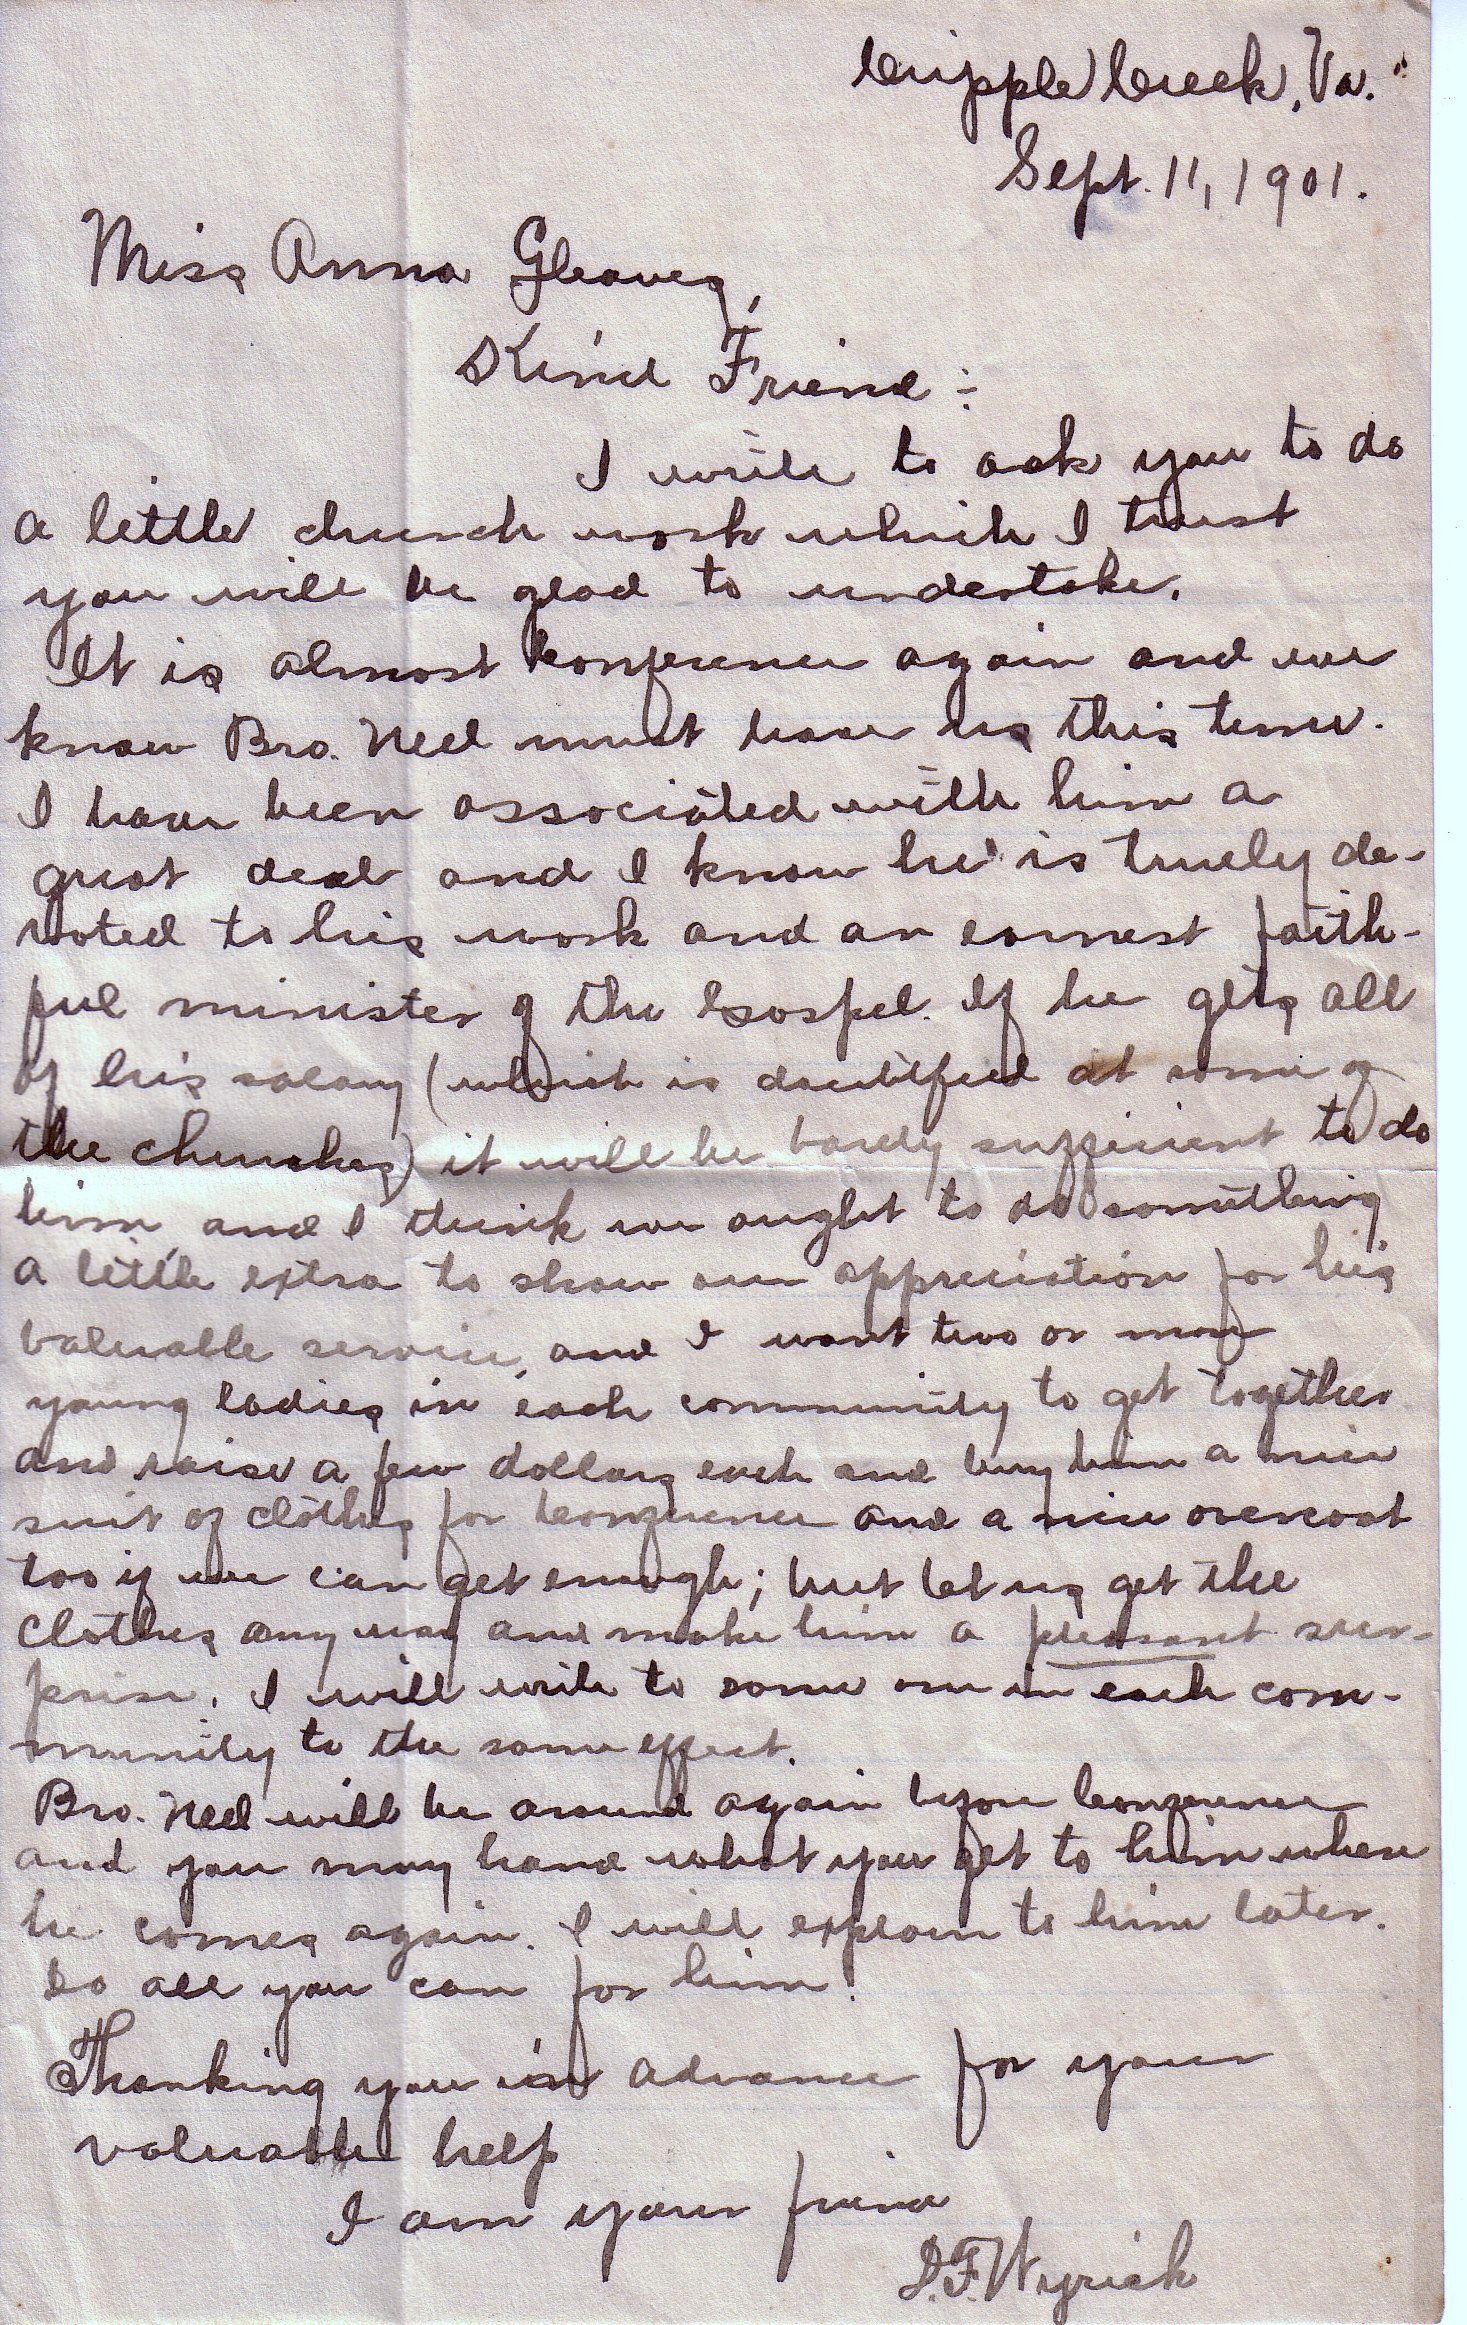 Cripple Creek, Va.
Sept. 11, 1901.
Miss Anna Gleaves,
Kind Friend:
I write to ask you to do
a little church work which I trust
you will be glad to undertake.
It is almost Conference again and we
know Bro. Neel must leave us this time.
I have been associated with him a
great deal and I know he is truely de-
voted to his work and an earnest faith-
ful minister of the Gospel. If he gets all
of his salary (which is doubtful at some of
the churches) it will be barely sufficient to do
him and I think we ought to do something
a little extra to show our appreciation for his
valuable service, and I want two or more
young ladies in each community to get together
and raise a few dollars each and buy him a nice
suit of clothes for Conference and a nice overcoat
too if we can get enough; but let us get the
clothes any way and make him a pleasant sur-
prise. I will write to some one in each com-
munity to the same effect.
Bro. Neel will be around again before Conference
and you may hand what you get to him when
he comes again. I will explain to him later.
Do all you can for him.
Thanking you in advance for your
valuable help
I am your friend
D.F. Wyrick